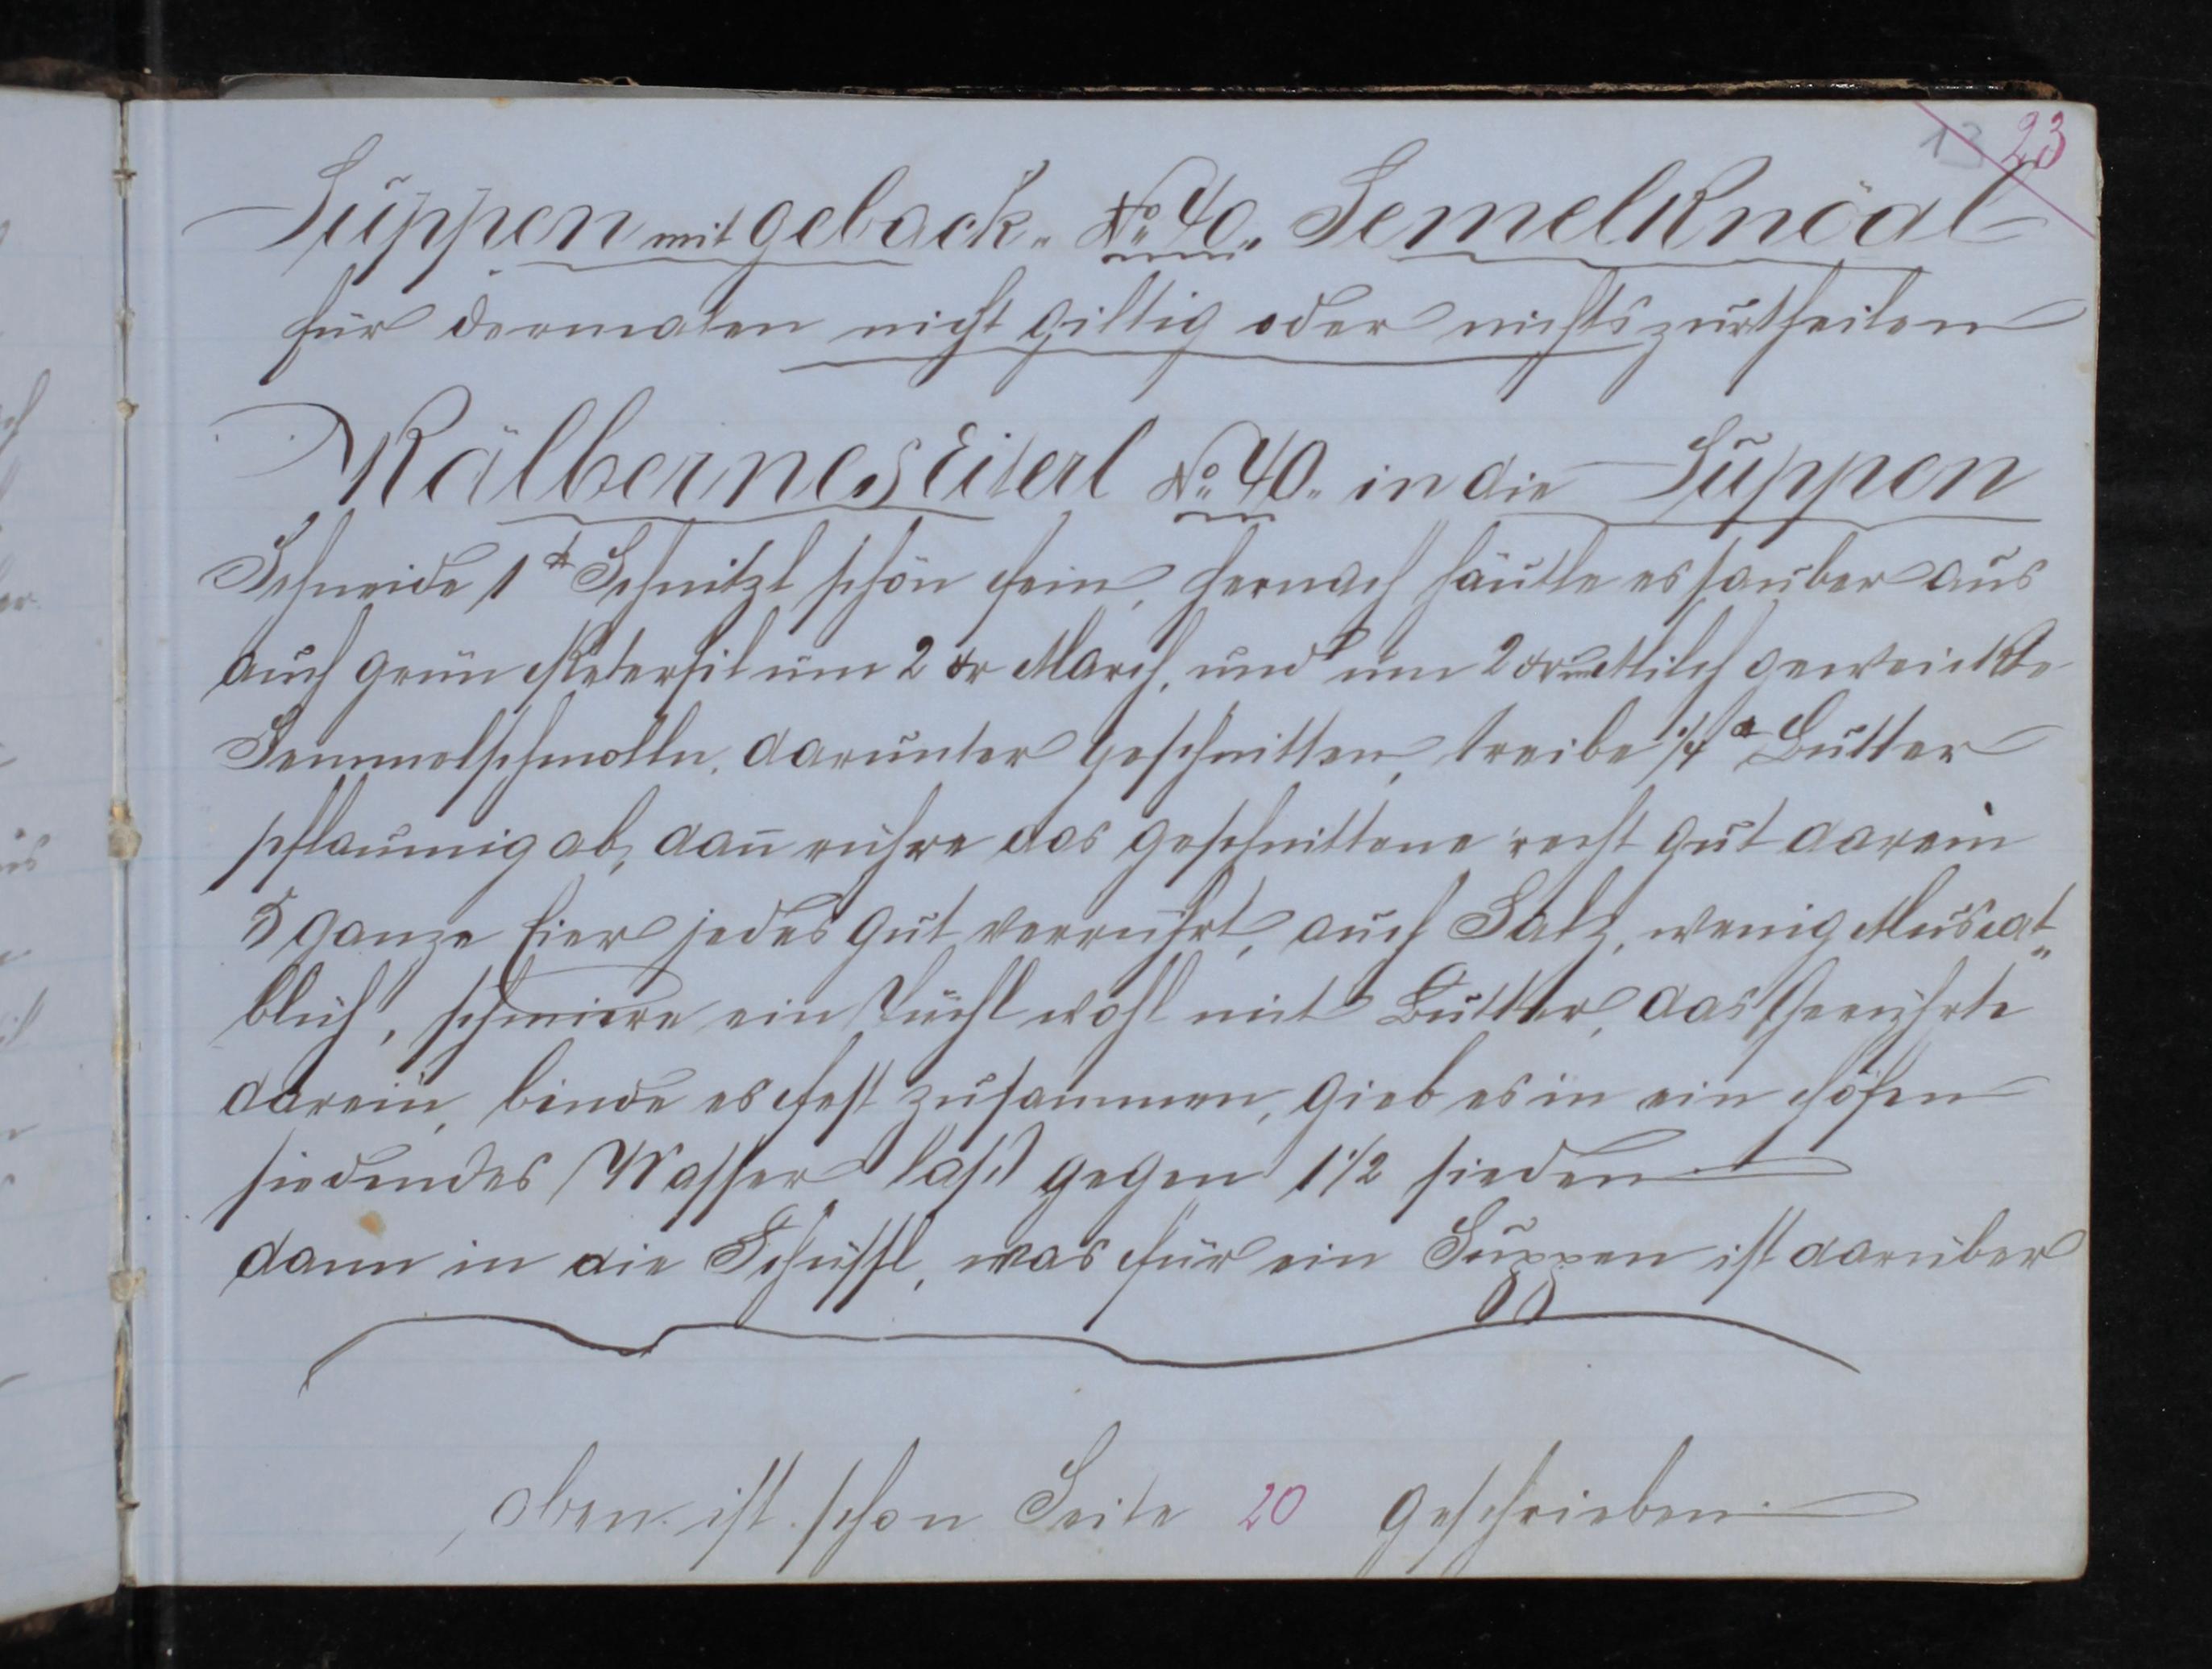 13 23
Suppen mit geback. No 40. Semelknödl
für dermalen nicht giltig oder nichts zurtheilen
Kälbernes Eiterl No 40. in die Suppen
Schneide 1 ℔ Schnitzl schön fein, hernach häutle es sauber aus
auch grün Petersil um 2 xr March, und um 2 xr Milch geweickte
Semmelschmolln, darunter geschnitten, treibe 1/4 ℔ Butter
pflaumig ab, dan̄ rühre das geschnittene recht gut darein
5 ganze Eier jedes gut verrührt, auch Salz, wenig Muscat„
blüh', schmiere ein Tüchl wohl mit Butter, das Gerührte
darein, binde es fest zusammen, gieb es in ein Höfen
siedendes Wasser laß gegen 1 1/2 sieden
dann in die Schüssl, was für ein Suppen ist darüber
oben ist schon Seite 20 geschrieben